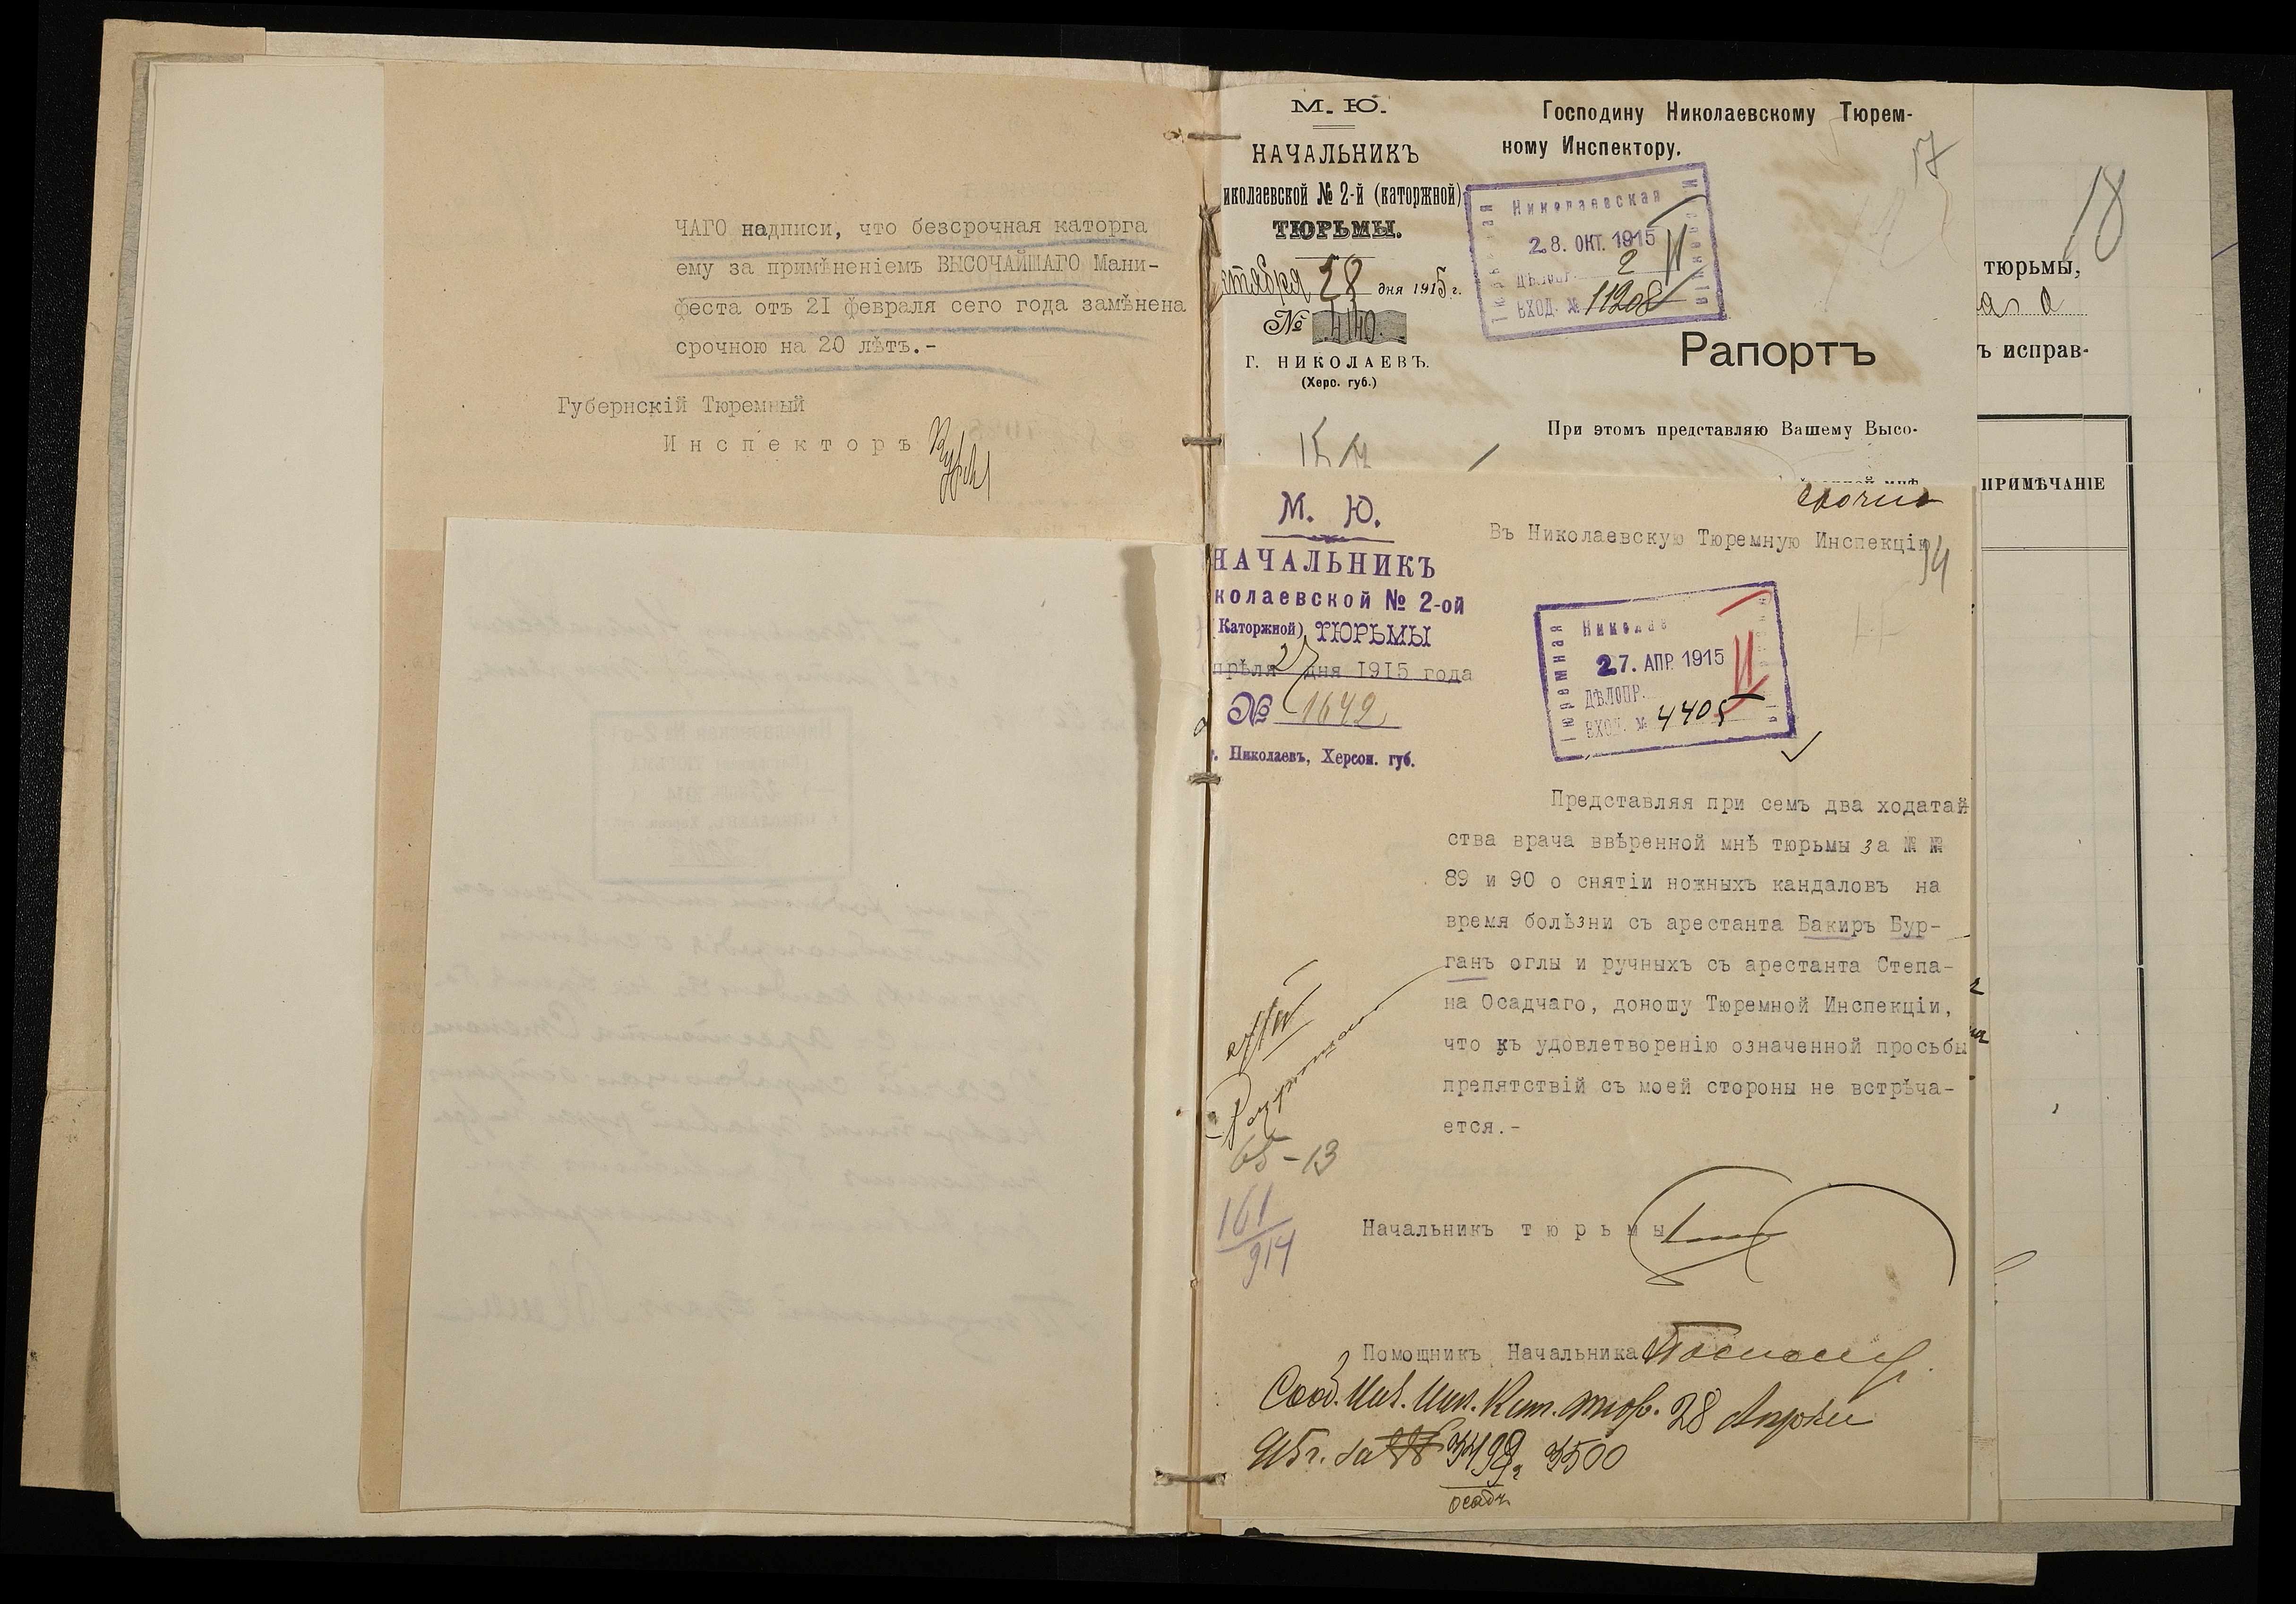 ЧАГО надписи, что безсрочная каторга
ему за примѣненіемъ ВЫСОЧАЙШАГО Мани-
феста отъ 21 февраля сего года замѣнена
срочною на 20 лѣтъ.-
Губернскій Тюремный
Инспекторъ
М. Ю.
НАЧАЛЬНИКЪ
иколаевской № 2-й (каторжной)
ТЮРЬМЫ.
ктября 28 дня 1915 г.
№ 4140.
Г. НИКОЛАЕВЪ.
(Херс. губ.)
Господину Николаевскому Тюрем-
ному Инспектору.
17
Николаевская
Тюремная
28. ОКТ. 1915
ДѢЛОПР. 2
ВХОД. № 11208
Инспекція
Рапортъ
При этомъ представляю Вашему Высо-
18
тюрьмы,
ъ исправ-
ПРИМѢЧАНІЕ
М. Ю.
НАЧАЛЬНИКЪ
колаевской № 2-ой
(Каторжной) ТЮРЬМЫ
прѣля 27 дня 1915 года
№ 1642
г. Николаевъ, Херсон. губ.
Срочно
Въ Николаевскую Тюремную Инспекцію
14
Николае
Тюремная
27. АПР. 1915
ДѢЛОПР.
ВХОД. № 4405
Представляя при семъ два ходатай
ства врача ввѣренной мнѣ тюрьмы за № №
89 и 90 о снятіи ножныхъ кандаловъ на
время болѣзни съ арестанта Бакиръ Бур-
ганъ оглы и ручныхъ съ арестанта Степа-
на Осадчаго, доношу Тюремной Инспекціи,
что къ удовлетворенію означенной просьбы
препятствій съ моей стороны не встрѣча-
ется.-
27/IV
Разрѣшаю
65-13
161/914
Начальникъ тюрьмы
Помощникъ Начальника
Сооб. Нач. Ник. Кат. тюр. 28 Апрѣля
915 г. за № 3499, 3500
Осадч.